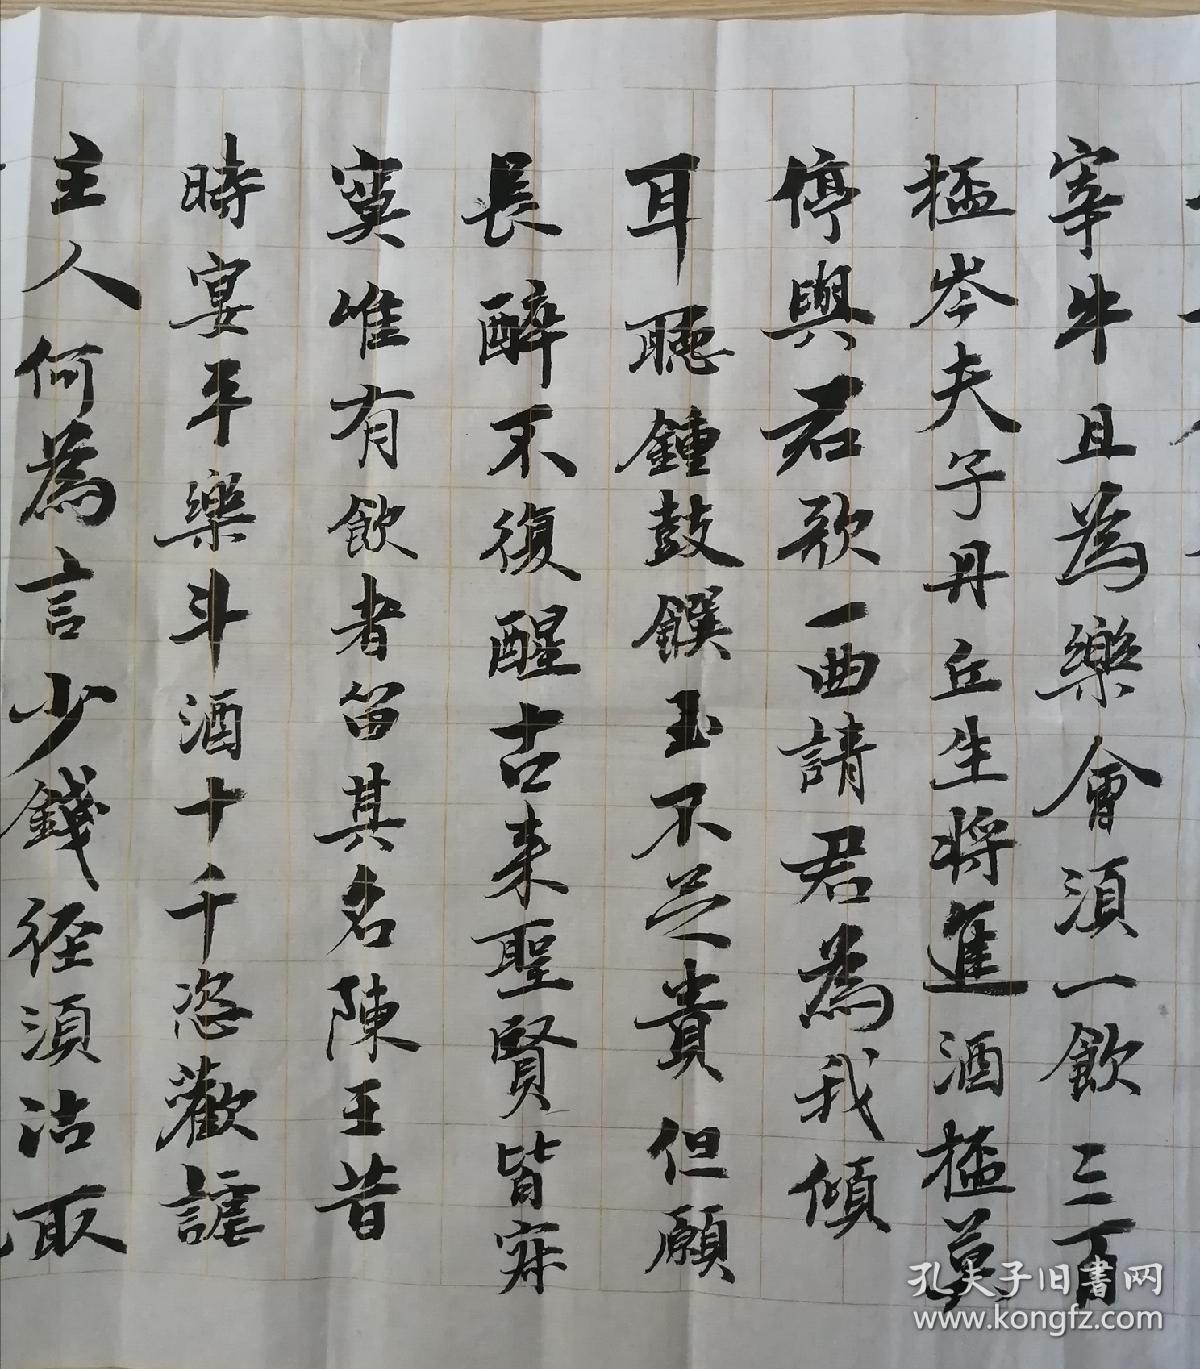 宰牛且為樂會須一飲三百
桮岑夫子丹丘生將進酒桮莫
停與君歌一曲請君為我傾
耳聽鍾鼓饌玉不足貴但願
長醉不復醒古来聖賢皆寂
寞惟有飲者留其名陳王昔
時宴平樂斗酒十千恣歡謔
主人何為言少錢径須沽取
孔夫子旧书网
www.kongfz.com